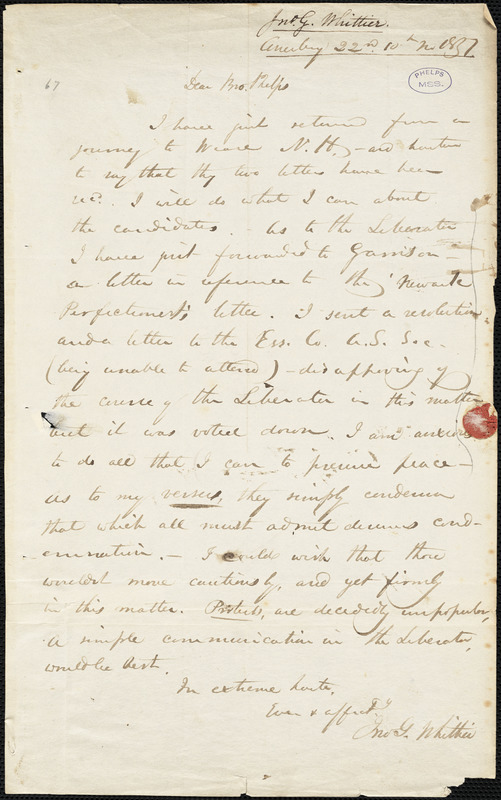 Jno. G. Whittier.
Amesbury 22nd. 10th Mo 1837
PHELPS
MSS.
67
Dear Bro. Phelps
I have just returned from a
journey to Weare N. H. – and hasten
to say that thy two letters have been
rec'd. I will do what I can about
the candidates. As to the Liberator
I have just forwarded to Garrison –
a letter in reference to the Newark
Perfectionist's letter. I sent a resolution
and a letter to the Ess. Co. A. S. Soc.
(being unable to attend) – disapproving of
the course of the Liberator in this matter
but it was voted down. I am anxious
to do all that I can to preserve peace –
as to my verses, they simply condemn
that which all must admit deserves cond-
emnation. – I could wish that thou
wouldst move cautiously, and yet firmly
in this matter. Protests, are decidedly unpopular,
a simple communication in the Liberator,
would be best.
In extreme haste,
Ever & affect'y
Jno. G. Whittier